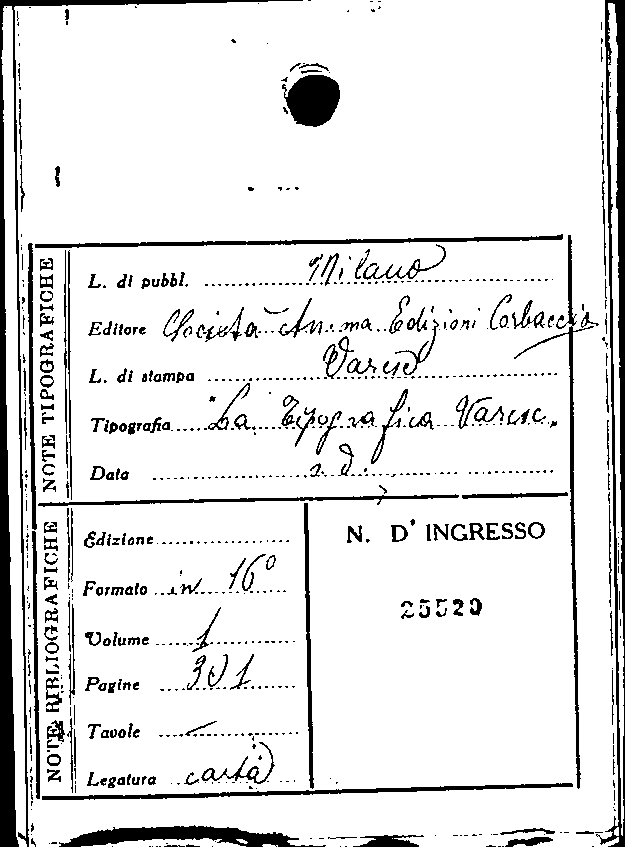 NOTE TIPOGRAFICHE
L. di pubbl. Milano
Editore Società An.ma Edizioni Corbaccio
L. di stampa Varese
Tipografia "La Tipografica Varese"
Data s. d.
NOTE BIBLIOGRAFICHE
Edizione
Formato in 16°
Volume 1
Pagine 301
Tavole —
Legatura carta
N. D' INGRESSO
25520